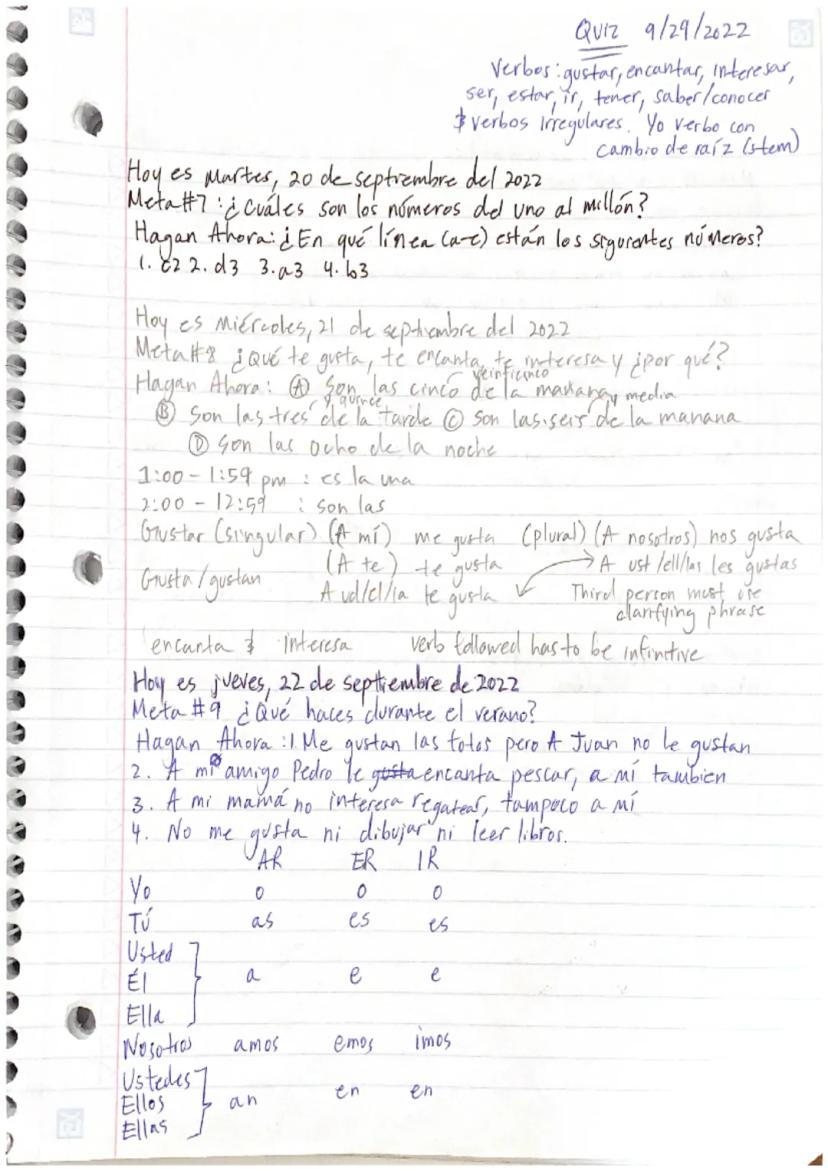 Quiz 9/29/2022
Verbos: gustar, encantar, interesar,
ser, estar, ir, tener, saber/conocer
& verbos irregulares. Yo verbo con
cambio de raíz (stem)
Hoy es martes, 20 de septiembre del 2022
Meta #7: ¿Cuáles son los números del uno al millón?
Hagan Ahora: ¿En qué línea (a-e) están los siguientes números?
1. c2 2. d3 3. a3 4. b3
Hoy es miércoles, 21 de septiembre del 2022
Meta #8 ¿Qué te gusta, te encanta, te interesa y ¿por qué?
veinficinco
Hagan Ahora: Ⓐ Son las cinco de la mañana y media
y quince
Ⓑ Son las tres de la tarde Ⓒ Son las seis de la manana
Ⓓ Son las ocho de la noche
1:00 - 1:59 pm : es la una
2:00 - 12:59 : son las
Gustar (singular) (A mí) me gusta (plural) (A nosotros) nos gusta
(A te) te gusta → A ust/ell/las les gustas
Gusta/gustan A ud/el/la te gusta Third person must use
clarifying phrase
encanta & interesa verb followed has to be infintive
Hoy es jueves, 22 de septiembre de 2022
Meta #9 ¿Qué haces durante el verano?
Hagan Ahora: 1. Me gustan las fotos pero A Juan no le gustan
2. A mi amigo Pedro le gusta encanta pescar, a mí tambien
3. A mi mamá no interesa regatear, tampoco a mí
4. No me gusta ni dibujar ni leer libros.
AR ER IR
Yo o o o
Tú as es es
Usted
Él a e e
Ella
Nosotros amos emos imos
Ustedes
Ellos an en en
Ellas